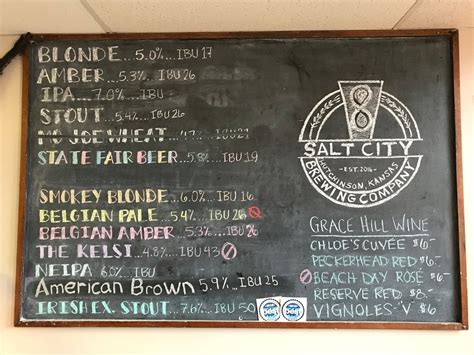 BLONDE...5.0%...IBU 17
AMBER...5.3%...IBU 26
IPA...7.0%...IBU
STOUT...5.4%...IBU 26
MO JOE WHEAT...4.7%...IBU 21
STATE FAIR BEER...5.8%...IBU 19
SMOKEY BLONDE...6.0%...IBU 16
BELGIAN PALE...5.4%...IBU 26
BELGIAN AMBER...5.3%...IBU 26
THE KELSI...4.8%...IBU 43
NEIPA...6.0%...IBU
American Brown 5.9%...IBU 25
IRISH EX. STOUT...7.6%...IBU 50
SALT CITY
EST. 2016
HUTCHINSON, KANSAS
BREWING COMPANY
GRACE HILL WINE
CHLOE'S CUVÉE $6-
PECKERHEAD RED $6-
BEACH DAY ROSÉ $6-
RESERVE RED $8-
VIGNOLES "V" $6-